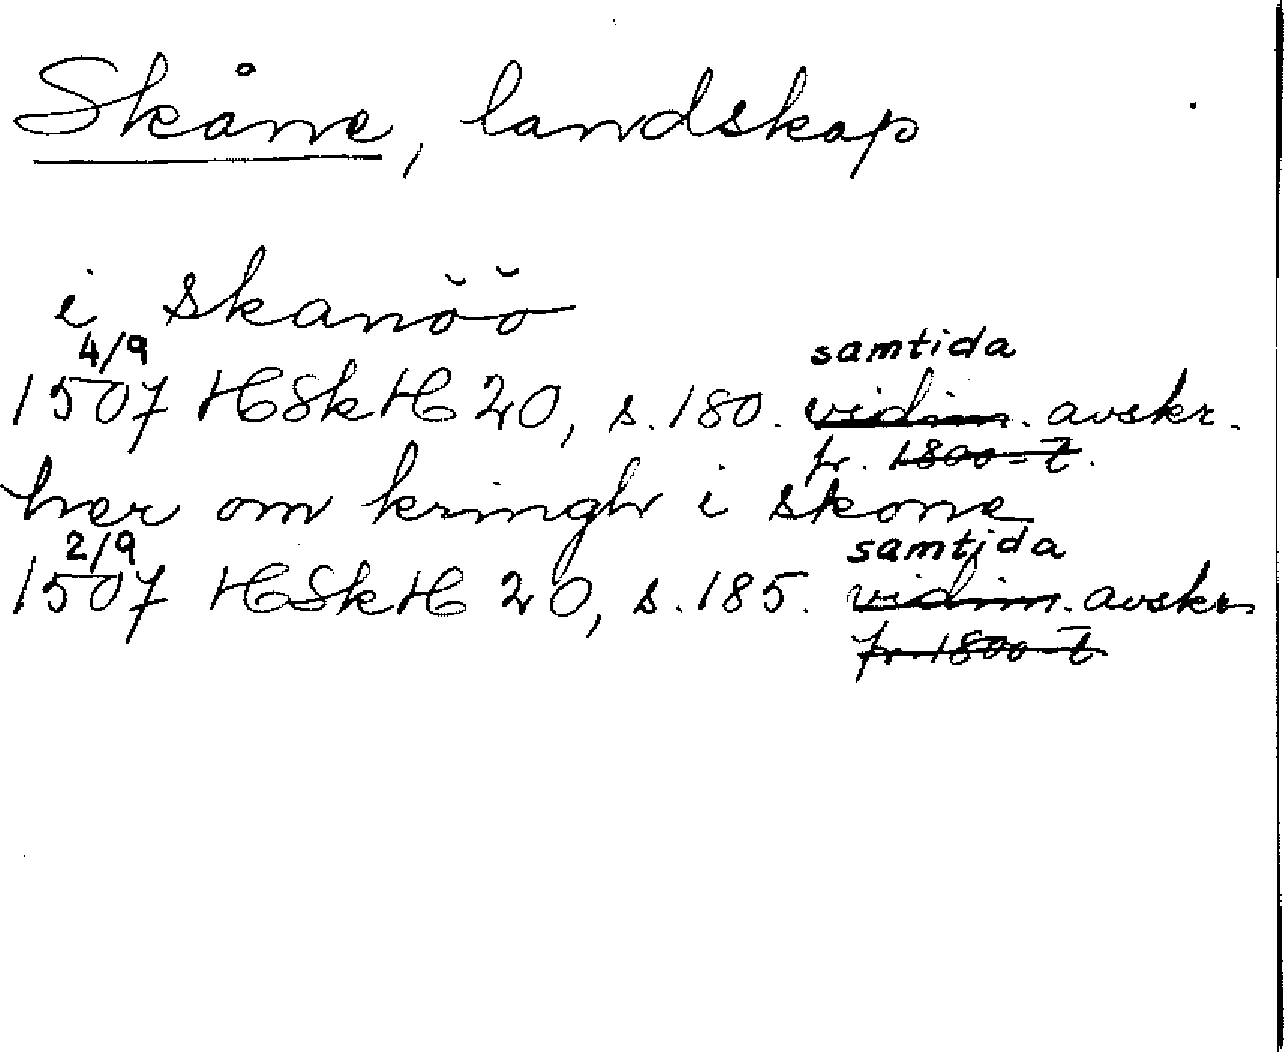 Skåne, landskap
i skanöö
4/9 samtida
1507 HSkH 20, s. 180. vidim. avskr.
fr. 1800-t.
hær om kringh i skone
2/9 samtida
1507 HSkH 20, s. 185. vidim. avskr
fr. 1800-t.